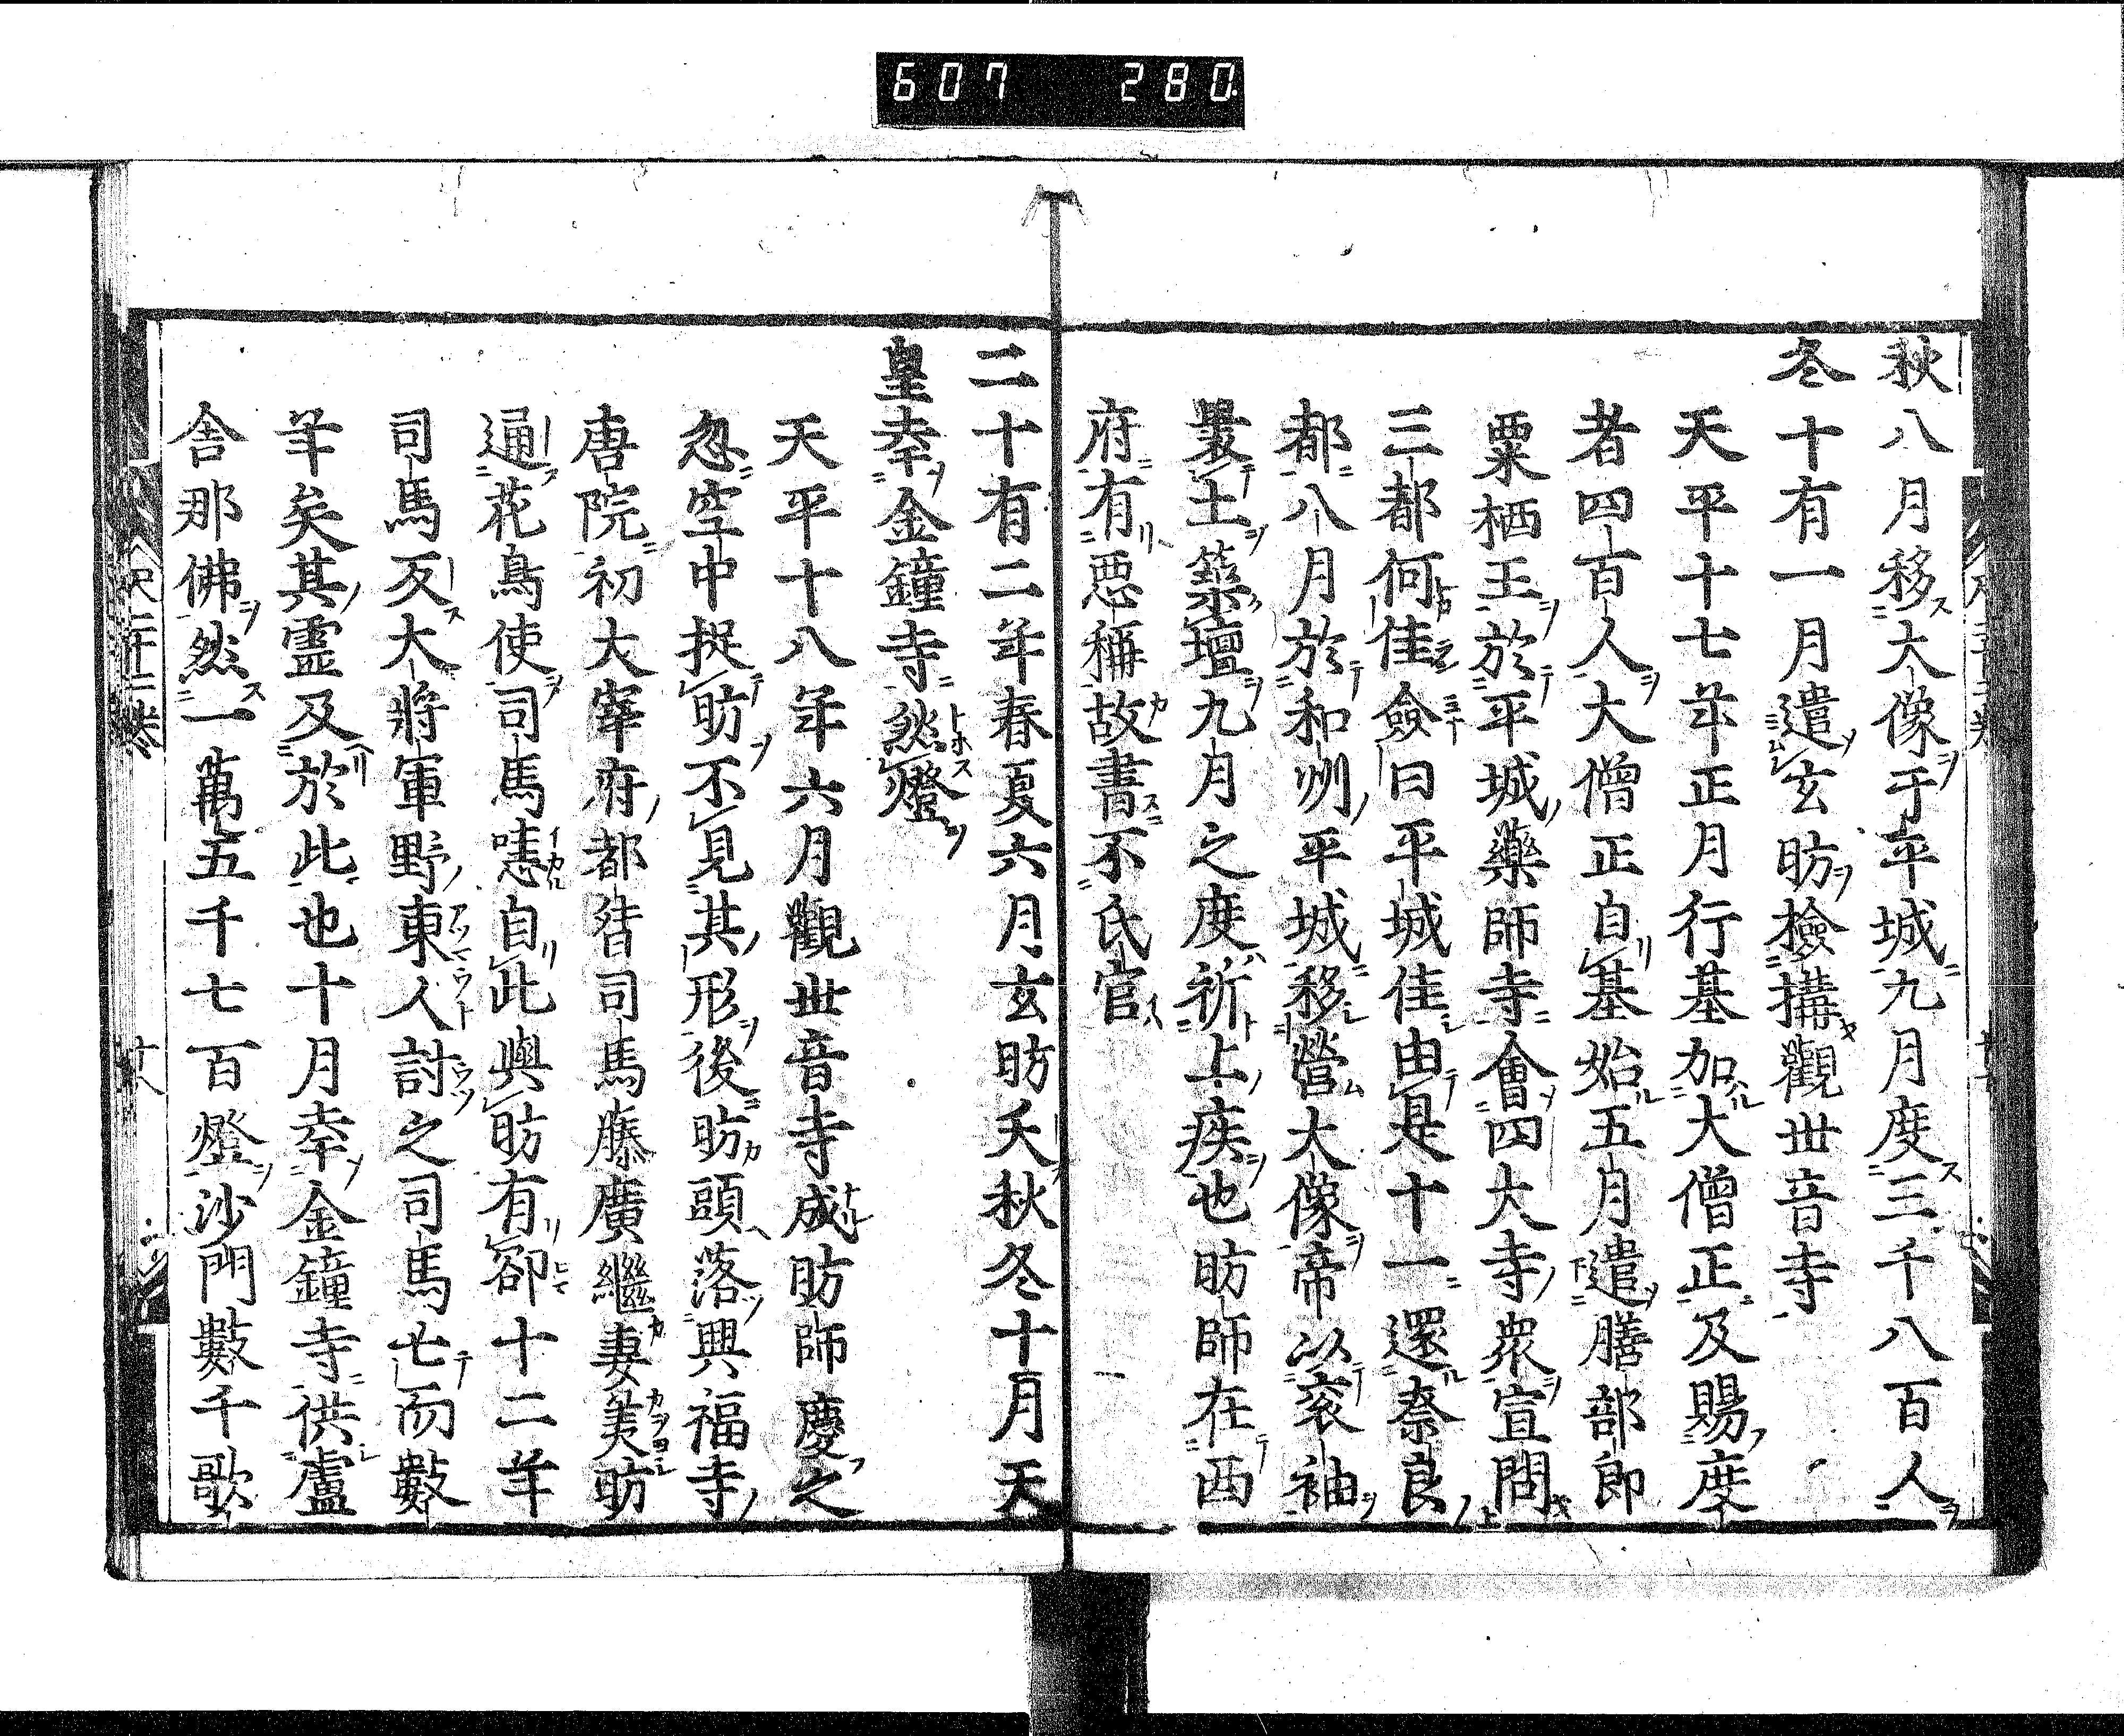 607 280
秋八月移大像于平城九月度三千八百人
冬十有一月遣玄昉檢搆觀世音寺
天平十七年正月行基加大僧正及賜度
者四百人大僧正自基始五月遣膳部郎
粟栖王於平城藥師寺會四大寺衆宣問
三都何佳僉曰平城佳由是十一還奈良
都八月於和州平城移營大像帝以衮袖
褁土築壇九月之度祈上疾也昉師在西
府有惡稱故書不氏官
二十有二年春夏六月玄昉夭秋冬十月天
皇幸金鐘寺然燈
天平十八年六月觀世音寺成昉師慶之
忽空中捉昉不見其形後昉頭落興福寺
唐院初大宰府都督司馬藤廣繼妻美昉
通花鳥使司馬恚自此與昉有郤十二年
司馬反大將軍野東人討之司馬亡而數
年矣其霊及於此也十月幸金鐘寺供盧
舎那佛然一萬五千七百燈沙門數千歌
尺二十二卷
十八